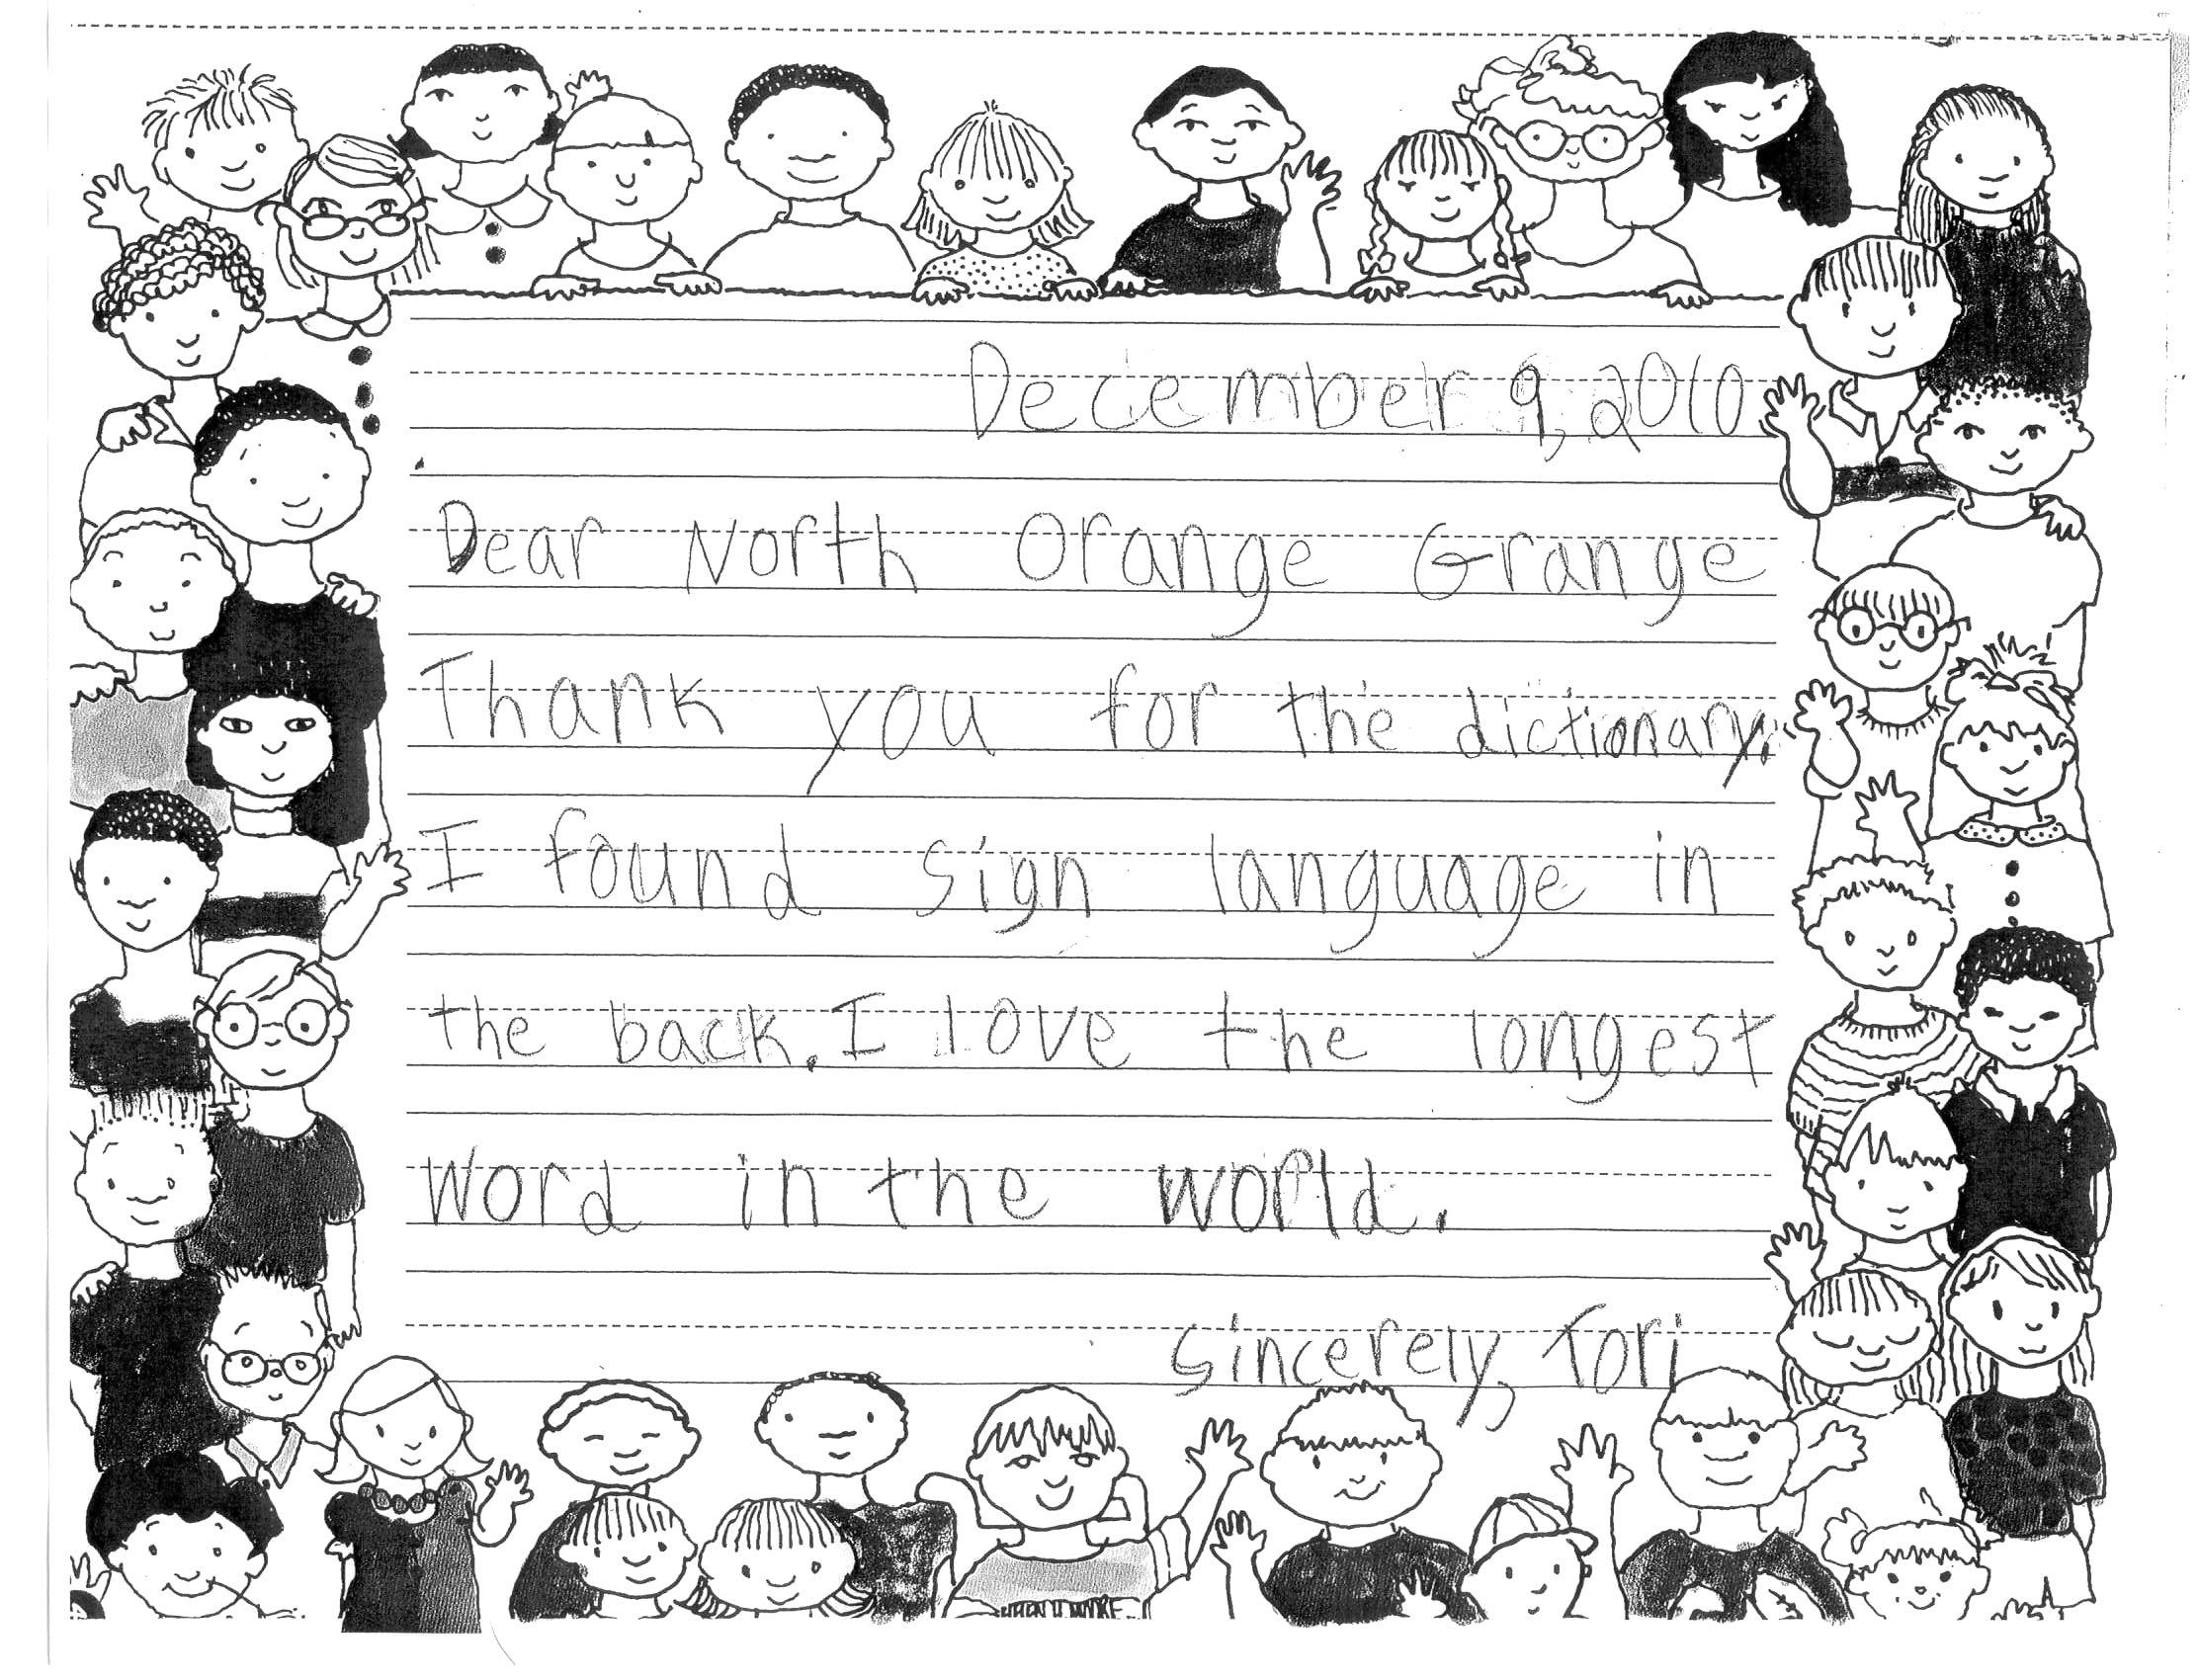 December 9, 2010
Dear North Orange Grange
Thank you for the dictionary.
I found sign language in
the back. I love the longest
word in the world.
Sincerely, Tori